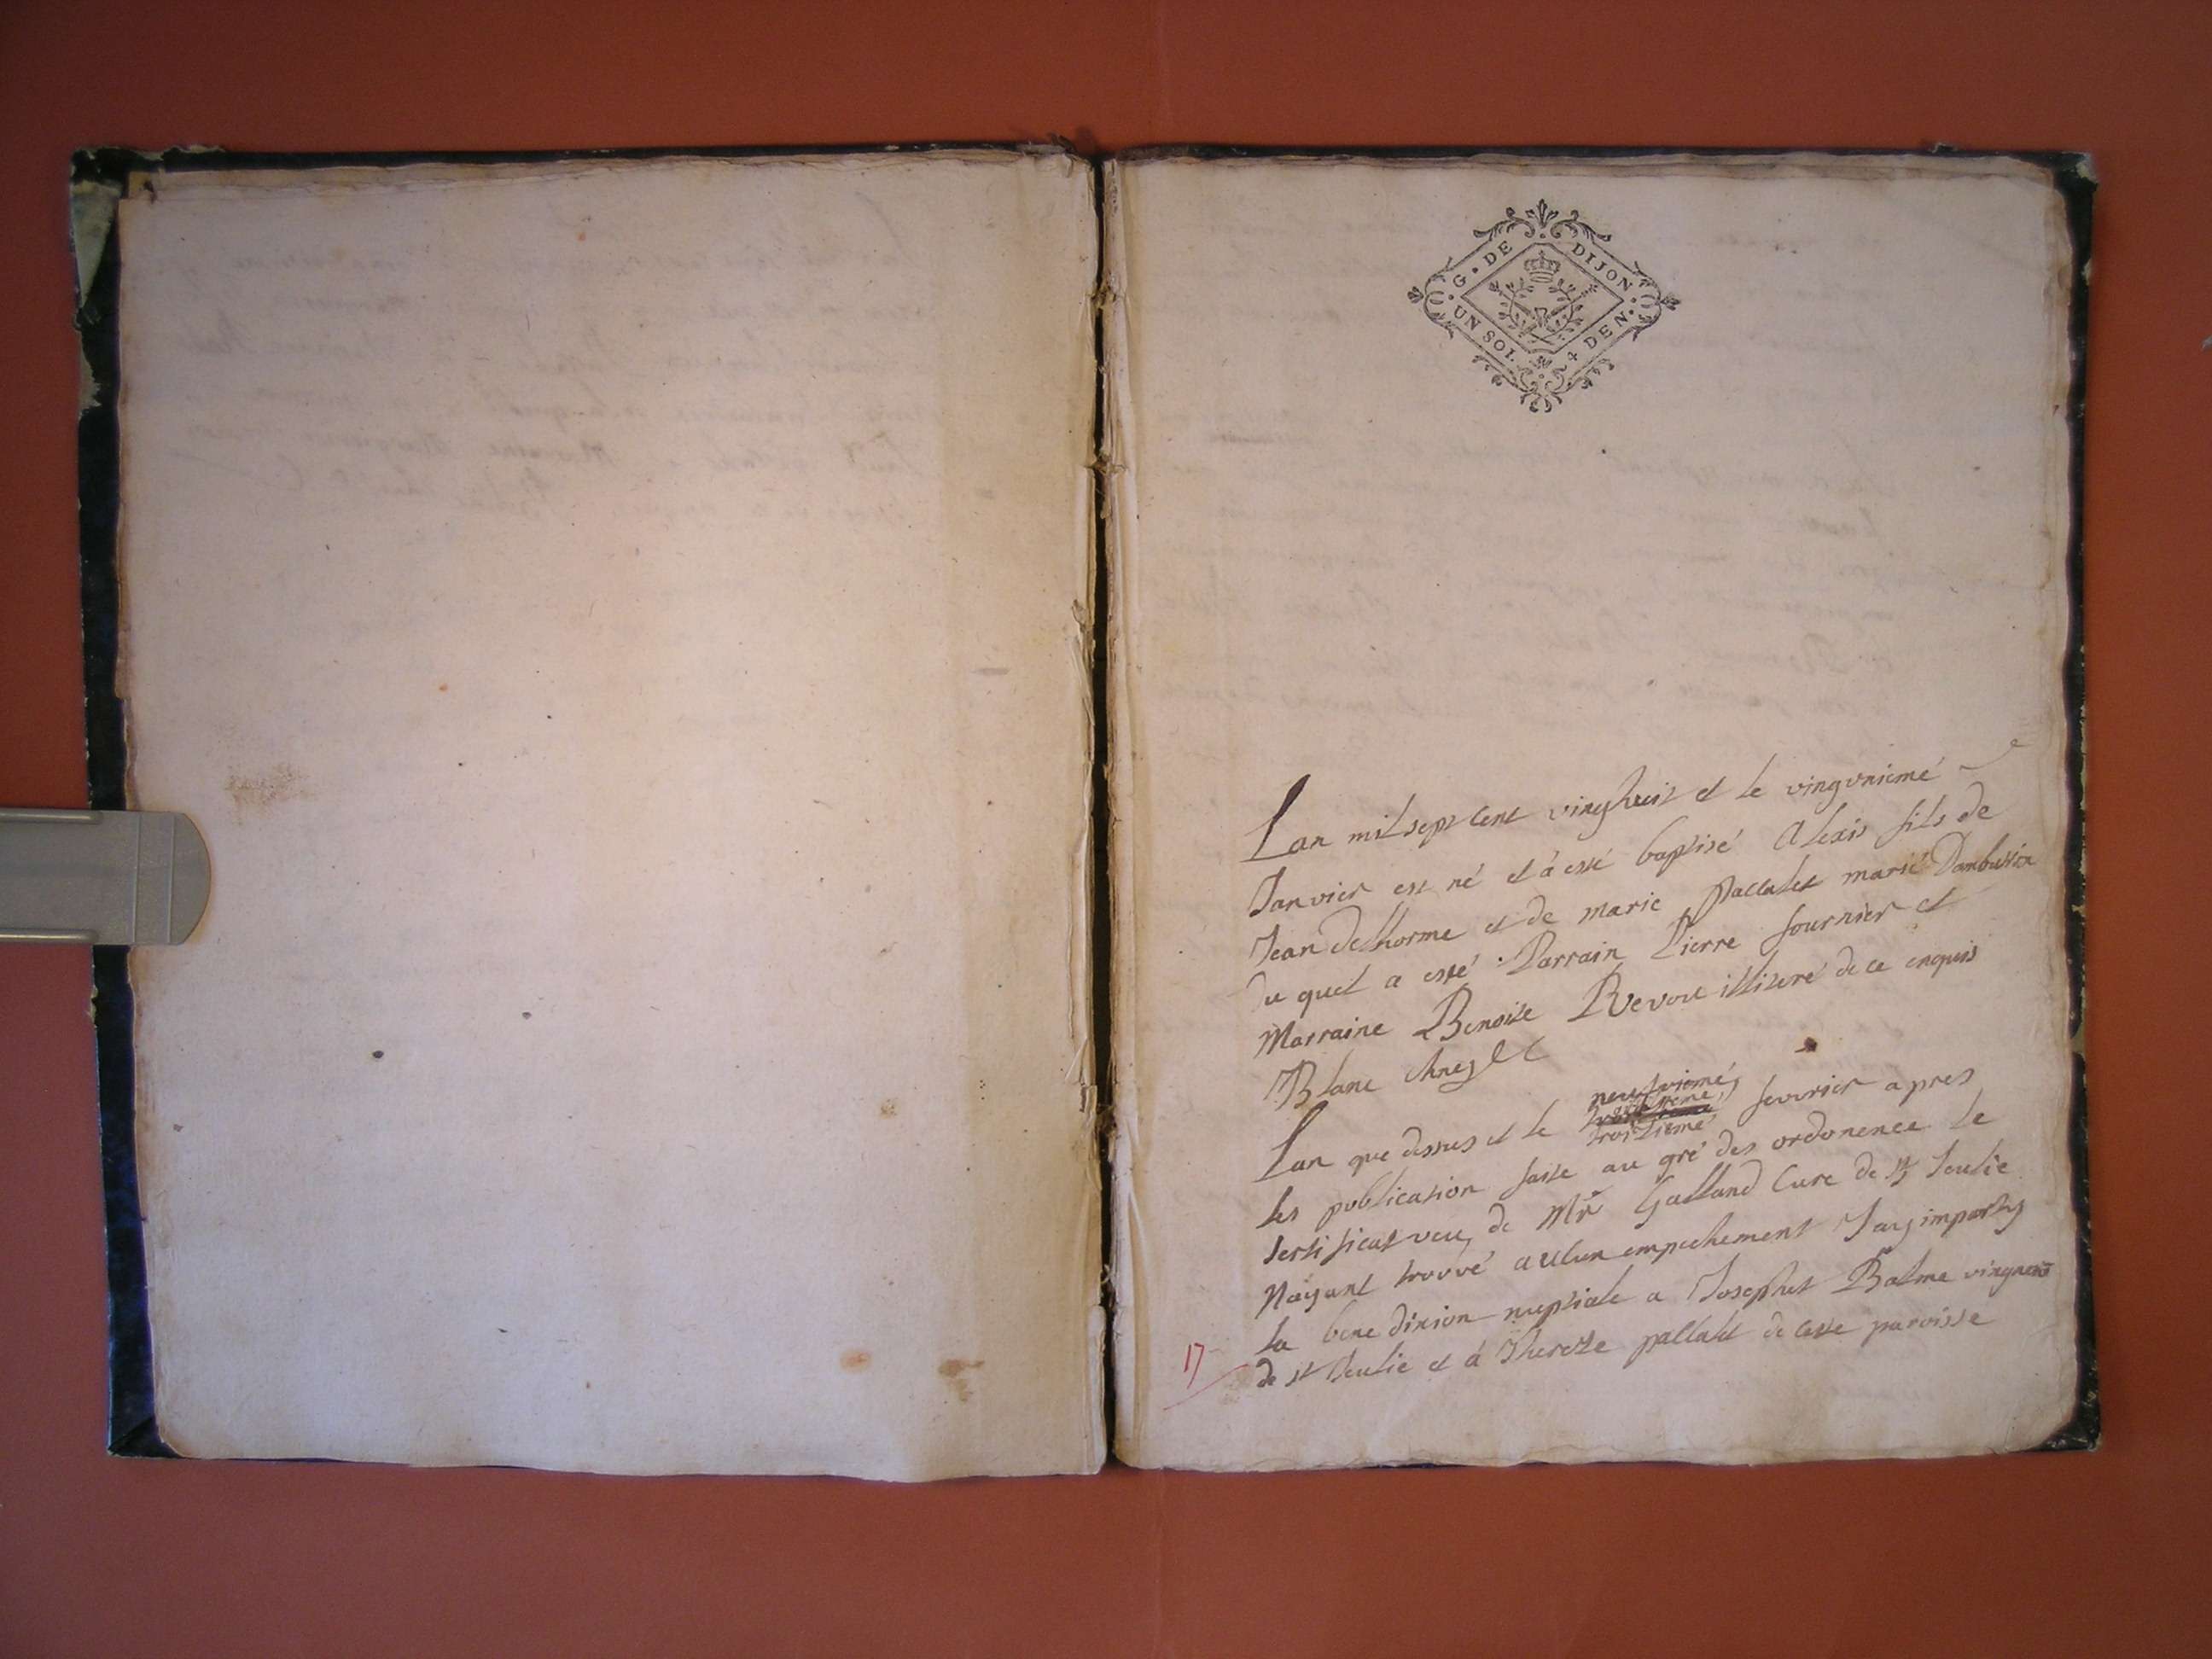 G. DE DIJON
UN SOL 4 DEN.
Lan mil sept Cent vingthuit et le vingvniemé
Janvier est né et á esté baptisé Alexis fils de
Jean Delhorme et de marie Pallatet marié Dambutrix
du quel a esté Parrain Pierre fournier et
Marraine Benoite Revou illiteré de ce enquis
Blanc
neufviemé
Lan que dessus et le fevrier apres
troizieme
les publication faite au gré des ordonence le
sertificat veu, de Mr Galland Cure de st Seulie
Nayant trouvé auCun empechement Jay imparty
la bene dixion nuptiale a Josephet Balme vingneron
17
de st Seulie et á Thereze pallatet de Cette paroisse